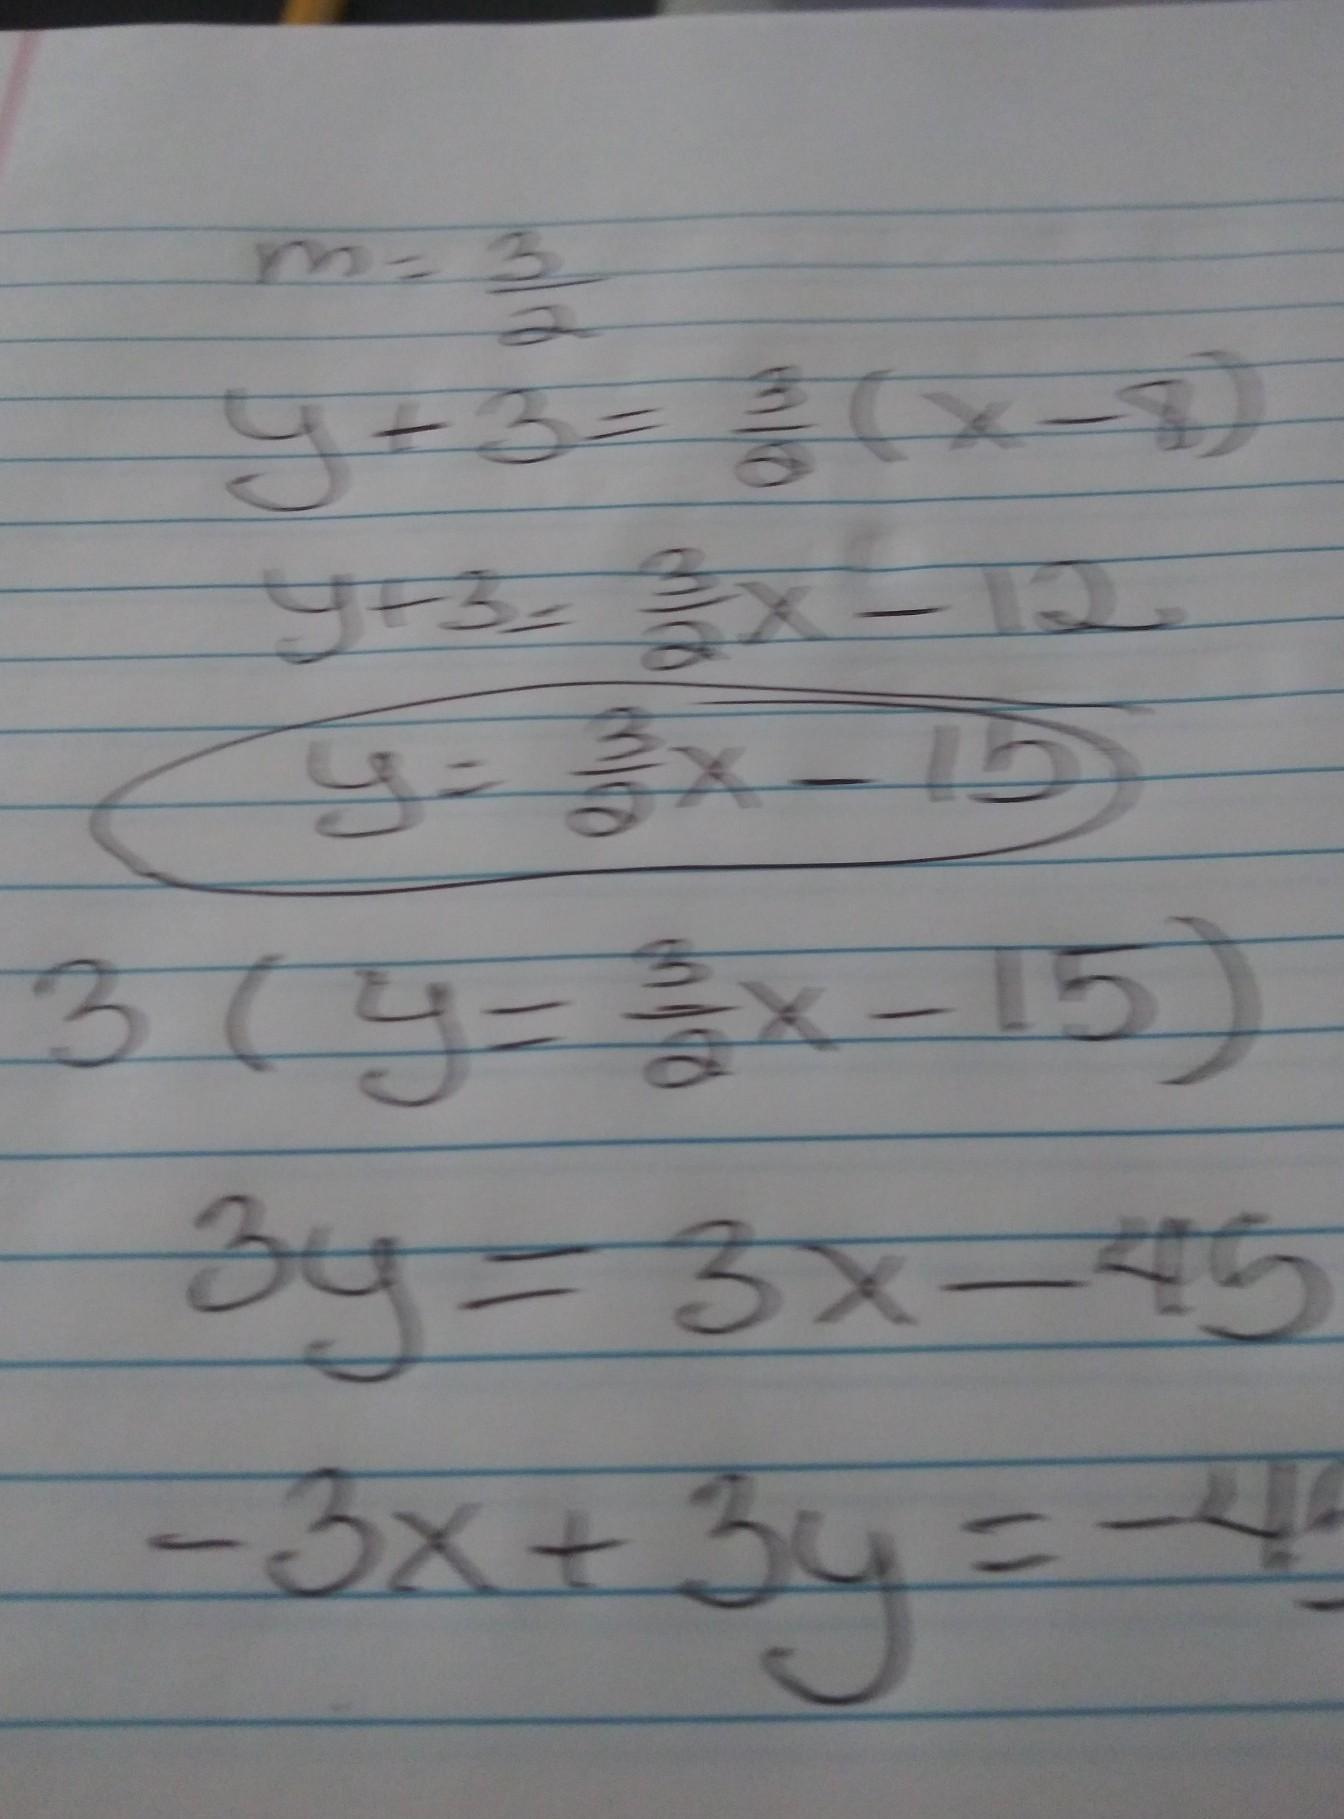 m = 3/2
y + 3 = 3/2 (x - 8)
y + 3 = 3/2 x - 12
y = 3/2 x - 15
3 ( y = 3/2 x - 15 )
3y = 3x - 45
-3x + 3y = -45